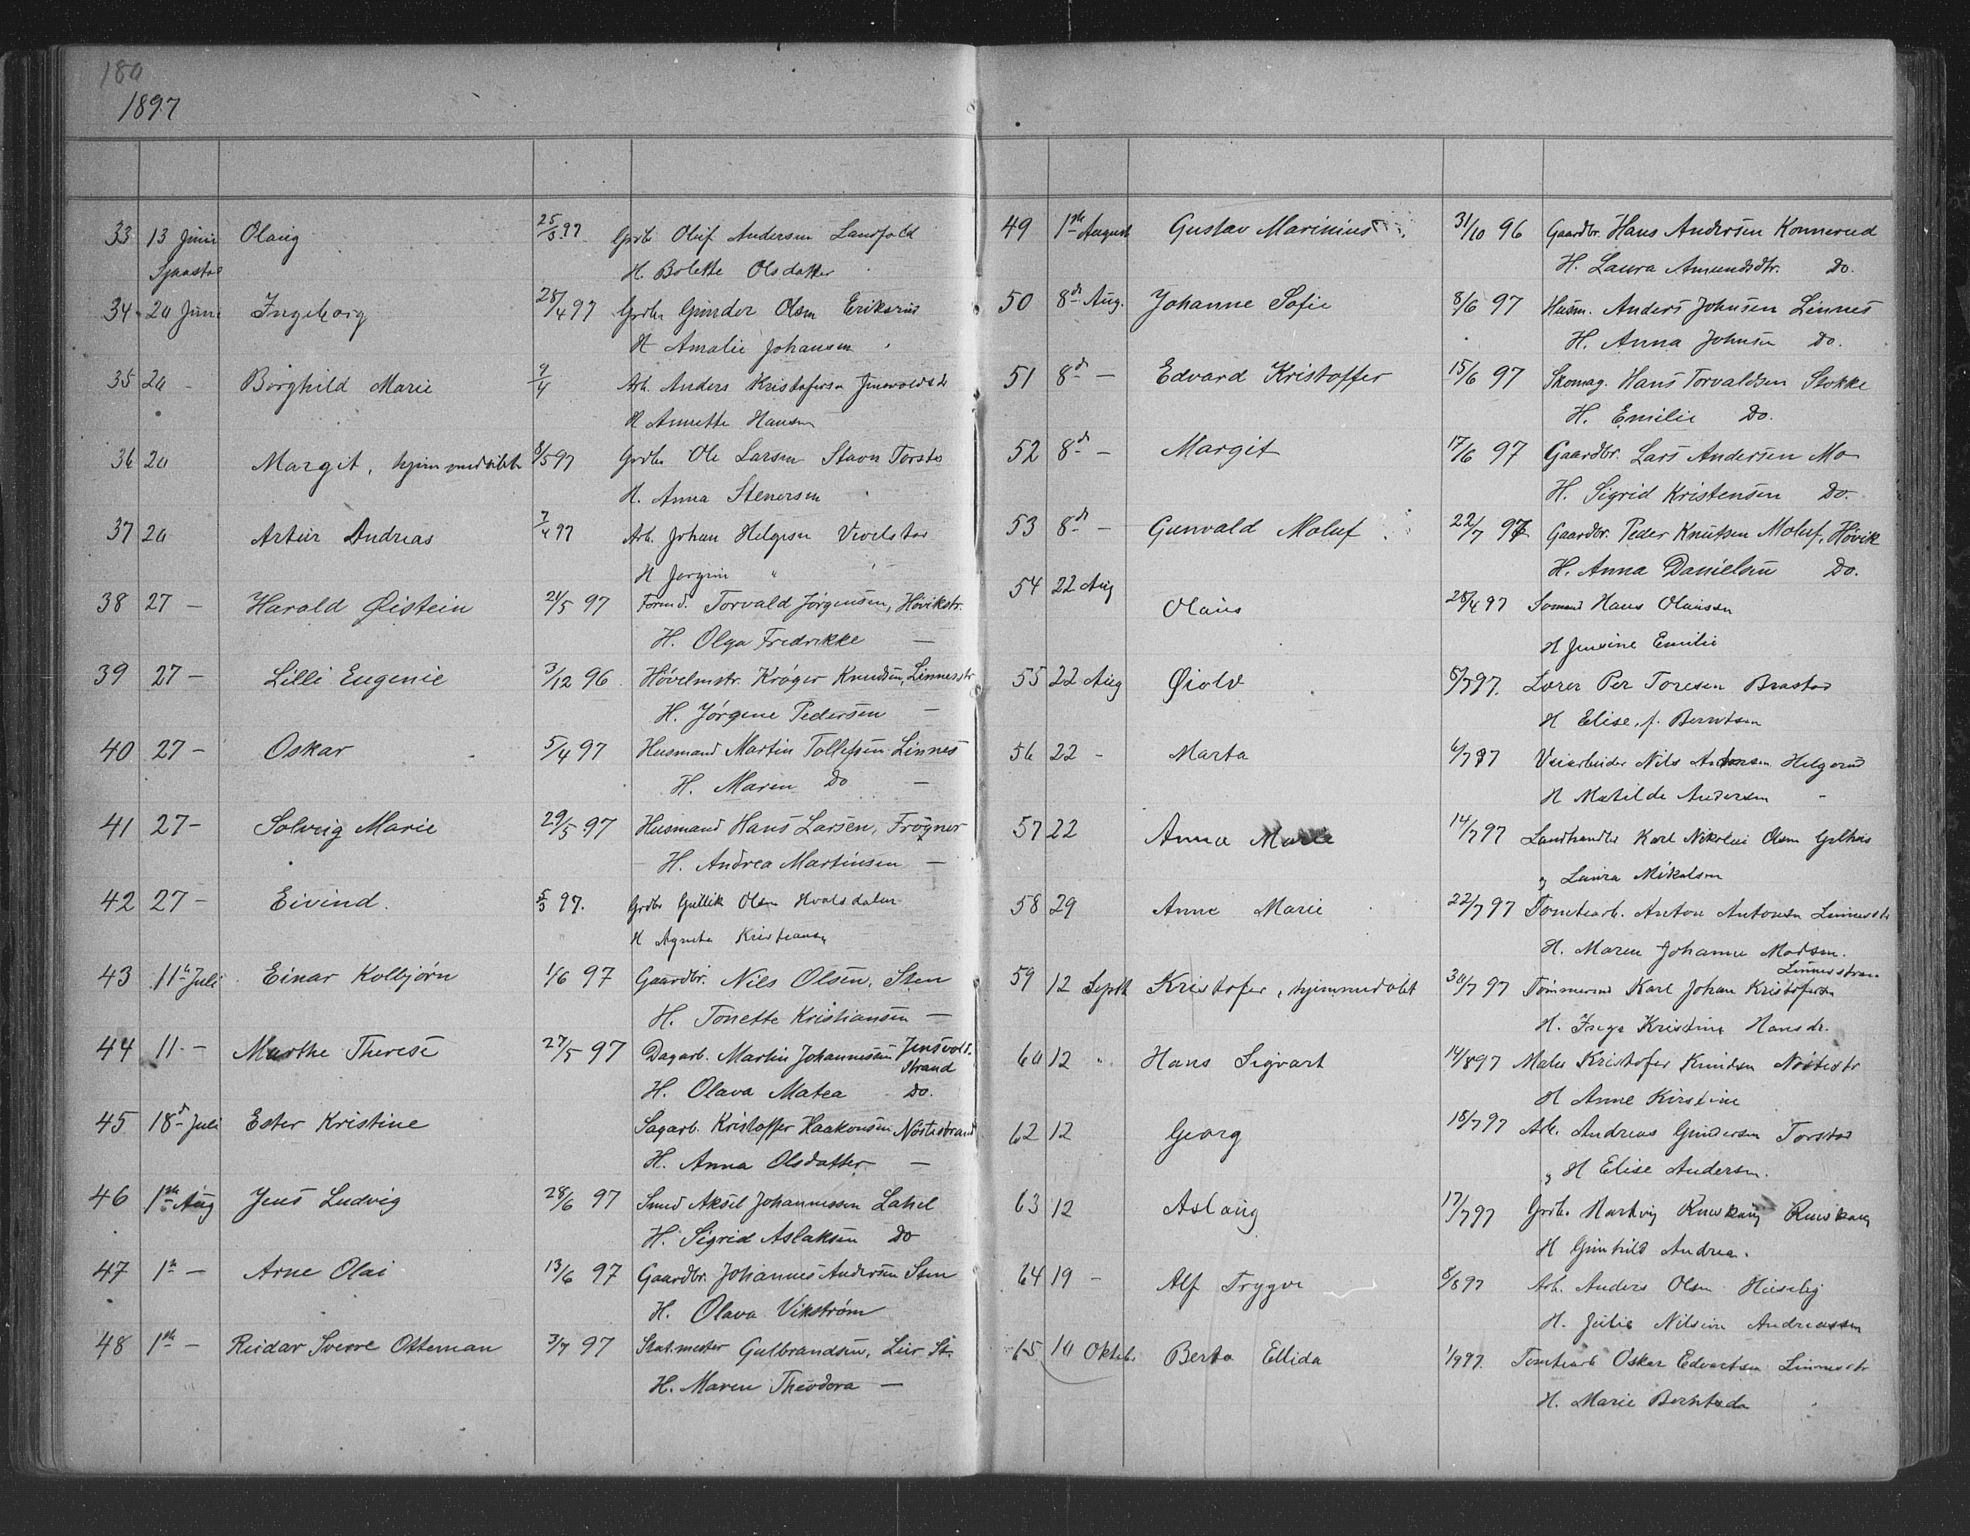 180
1897
33 13 Juni Olaug 25/3 97 Grdbr Oluf Andersen Landfald
Sjaastad H. Bolette Olsdatter
34 20 Juni Ingeborg 28/4 97 Grdbr Gunder Olsen Eriksrud
H Amalie Johansen
35 20 - Borghild Marie 9/4 Arb. Anders Kristofersen
H Annette Hansen
36 20 Margit, hjemmedøbt 8/5 97 Grdbr Ole Larsen Stavn Torstad
H. Anna Stenersen
37 20 Artur Andreas 7/4 97 Arb. Johan Helgesen Vivelstad
H Jørgine "
38 27 - Harald Øistein 21/5 97 Formd. Torvald Jørgensen, Hövikstr.
H. Olga Fredrikke —
39 27 - Lilli Eugenie 3/12 96 Hóvlmstr. Króger Knudsen, Linnesstr
H. Jórgene Pedersen —
40 27 - Oskar 5/4 97 Husmand Martin Tollefsen Linnes
H. Maren Do —
41 27 - Solveig Marie 29/5 97 Husmand Hans Larsen, Frogner
H. Andrea Martinsen —
42 27 - Eivind. 5/3 97. Grdbr Gullik Olsen Hvalsdalen
H Agnete Kristiansen
43 11te Juli Einar Kolbjørn 1/6 97 Gaardbr. Nils Olsen, Sten
H. Tonette Kristiansen —
44 11. - Marthe Therese 27/5 97 Dagarb. Martin Johannessen Jensvold-
strand
H. Olava Matea Do.
45 18de Juli Ester Kristine Sagarb. Kristoffer Haakonsen Nóstestrand
H. Anna Olsdatter —
46 1ste Aug Jens Ludvig 28/6 97 Smed Aksel Johannessen Lahel
H. Sigrid Aslaksen Do
47 1ste - Arne Olai 13/6 97 Gaardbr. Johannes Andersen Sten
H. Olava Vikstrøm
48 1ste - Reidar Sverre Otteman 3/7 97 Stat.mester Gulbrandsen, Lier St.
H. Maren Theodora —
49 1ste August Gustav Marinius 31/10 96 Gaardbr. Hans Andersen Konnerud
H. Laura Amundsdtr. Do.
50 8de Aug. Johanne Sofie 8/6 97 Husm. Anders Johnsen Linnes
H. Anna Johnsen Do.
51 8de - Edvard Kristoffer 15/6 97 Skomag. Hans Torvaldsen Stokke
H. Emilie Do.
52 8de - Margit 17/6 97 Gaardbr. Lars Andersen Mo
H. Sigrid Kristensen Do.
53 8de - Gunvald Moluf 22/7 97 Gaardbr. Peder Knutsen Moluf, Hövik
H. Anna Danielsen Do.
54 22 Aug Olaus 28/4 97 Sømand Hans Olaussen
H Jensine Emilie
55 22 Aug Øiolv 5/7 97. Lærer Per Toresen Brastad
H Elise, f. Berntsen
56 22 - Marta 6/7 97 Veiarbeider Nils Antonsen Helgerud
H Matilde Andersen -
57 22 Anna Marie 14/7 97 Landhandler Karl Nikolai Olsen Gilhus
og Laura Mikalsen
58 29 Anne Marie 22/7 97 Tomtearb. Anton Antonsen Linnesstr
H. Maren Johanne Madsen.
Linnesstran
59 12 Septb Kristofer, hjemmedøbt 30/7 97 Tømmermd Karl Johan Kristofersen
H. Inga Kristine Hansdr.
60 12 " Hans Sigvart 14/8 97 Maler Kristofer Knudsen Nøstestr
H Anne Kirstine
62 12 Georg 18/7 97 Arb. Andreas Gundersen Torstad
og H Elise Andersen.
63 12 Aslaug 17/7 97 Grdbr. Hartvig
H Gunhild Andrea.
64 19 - Alf Trygve 8/8 97 Arb. Anders Olsen Huseby
H. Julie Nilsine Andreassen
65 10 Oktbr. Berta Ellida 1/9 97. Tomtearb Oskar Edvartsen Linnesstr
H. Marie Berntsda